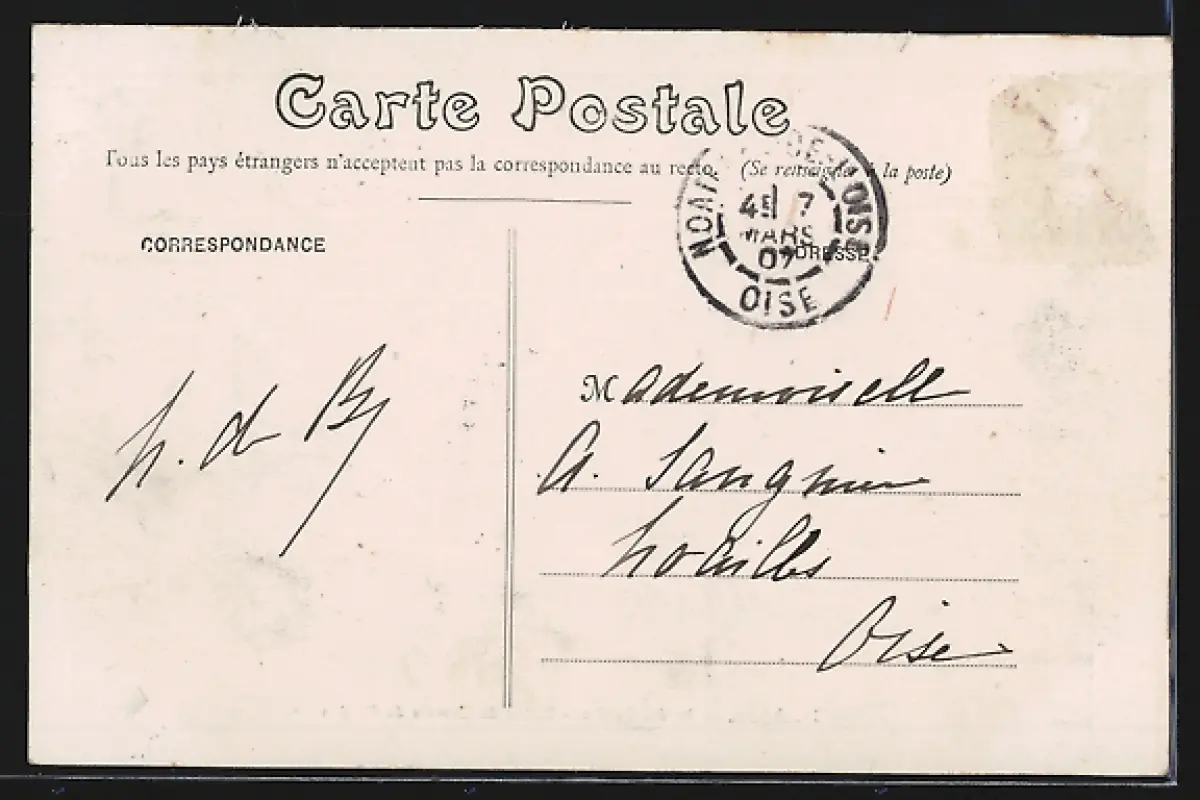 Carte Postale
Tous les pays étrangers n'acceptent pas la correspondance au recto. (Se renseigner à la poste)
CORRESPONDANCE
ADRESSE
4E 7
MARS
07
OISE
Mademoiselle
A.
Noailles
Oise